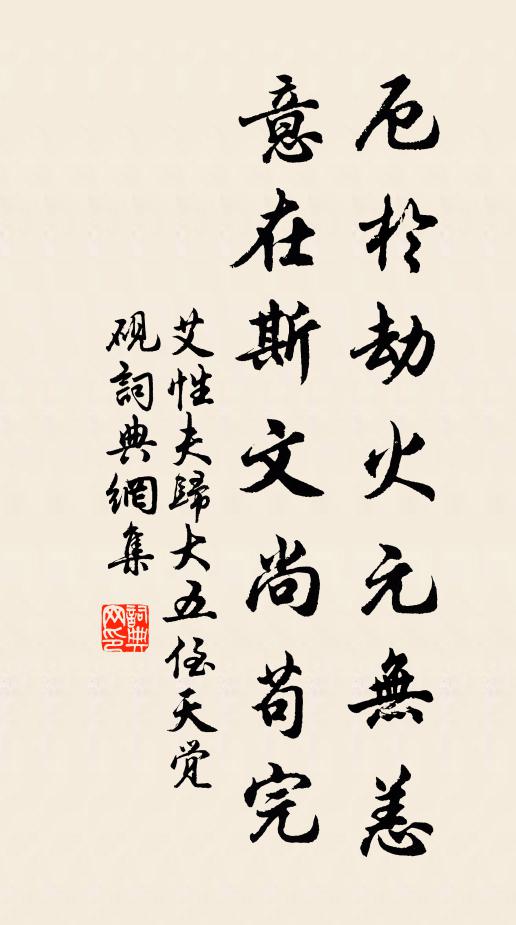 厄於劫火元無恙
意在斯文尚苟完
艾性夫歸大五侄天觉
硯詞典網集
詞典网印